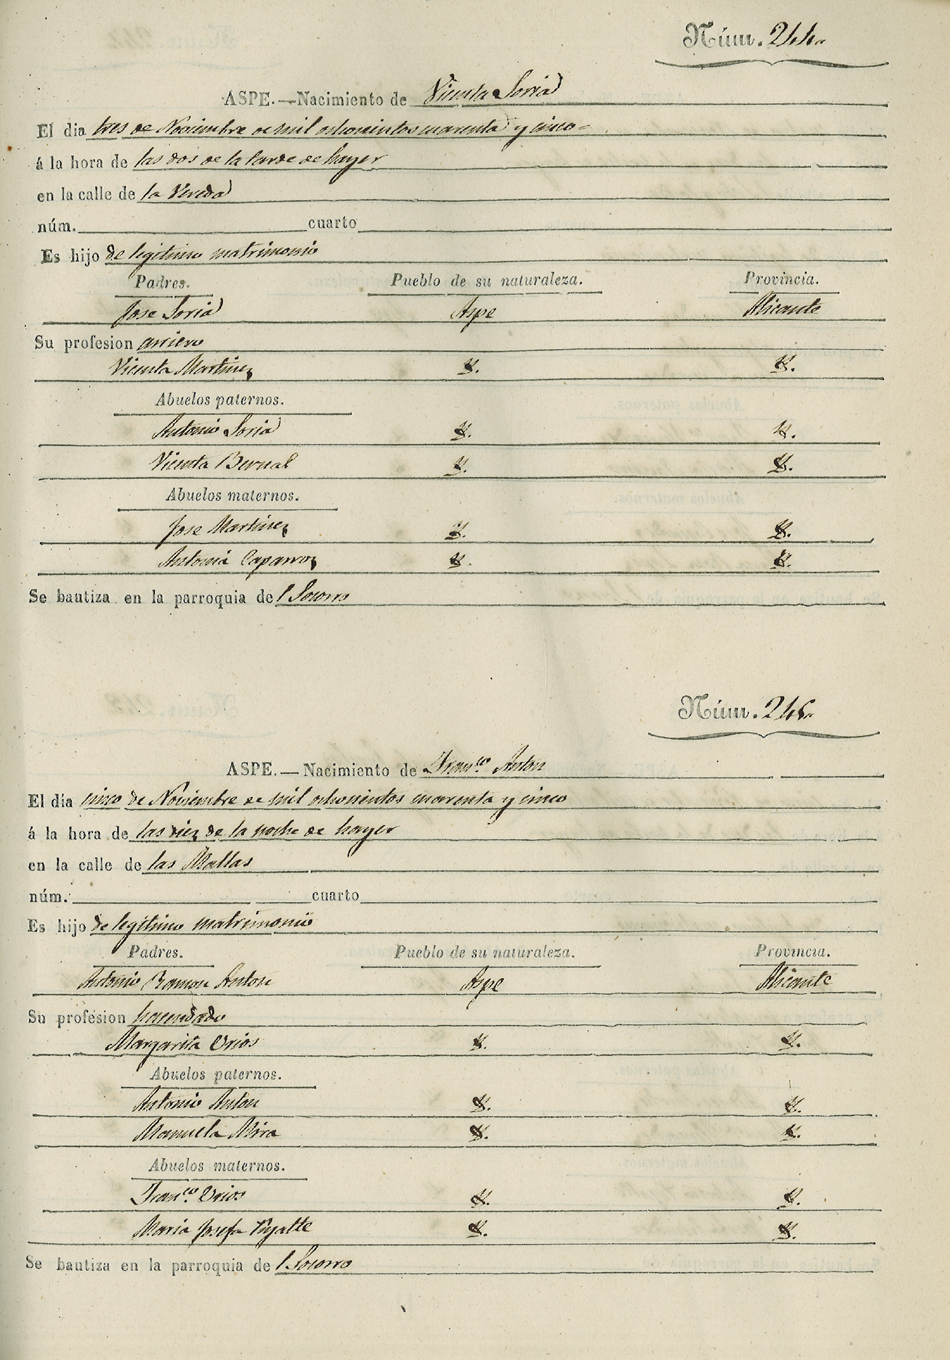 Núm. 244.
ASPE.—Nacimiento de Vicenta Soria
El dia tres de Noviembre de mil ochocientos cuarenta y cinco
á la hora de las dos de la tarde de hayer
en la calle de la Vereda
núm. cuarto
Es hijo de legitimo matrimonio
Padres. Pueblo de su naturaleza. Provincia.
Jose Soria Aspe Alicante
Su profesion arriero
Vicenta Martinez
Abuelos paternos.
Antonio Soria
Vicenta Bernal
Abuelos maternos.
Jose Martinez
Antonia Caparros
Se bautiza en la parroquia del Socorro
Núm. 245.
ASPE.—Nacimiento de Franco Anton
El dia cinco de Noviembre de mil ochocientos cuarenta y cinco
á la hora de las diez de la noche de hayer
en la calle de las Mallas
núm. cuarto
Es hijo de legitimo matrimonio
Padres. Pueblo de su naturaleza. Provincia.
Antonio Ramon Anton Aspe Alicante
Su profesion hacendado
Margarita Urios
Abuelos paternos.
Antonio Anton
Manuela Mira
Abuelos maternos.
Franco Urios
Maria Josefa
Se bautiza en la parroquia del Socorro